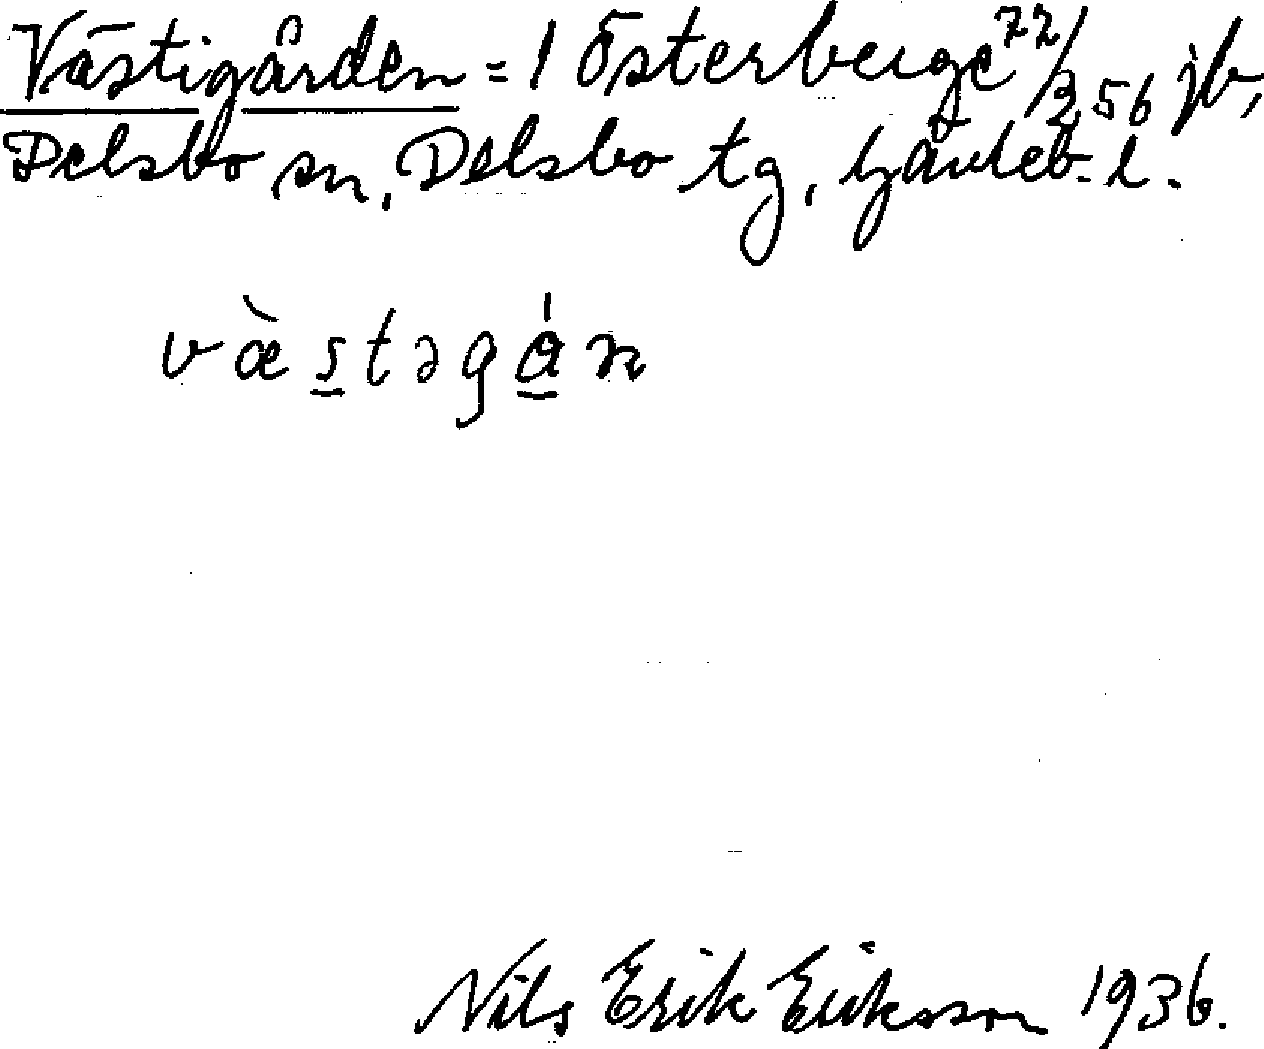 Västigården = 1 Österberge 72/256 jb,
Delsbo sn, Delsbo tg, Gävleb. l.
və̀stəgån
Nils Erik Eriksson 1936.